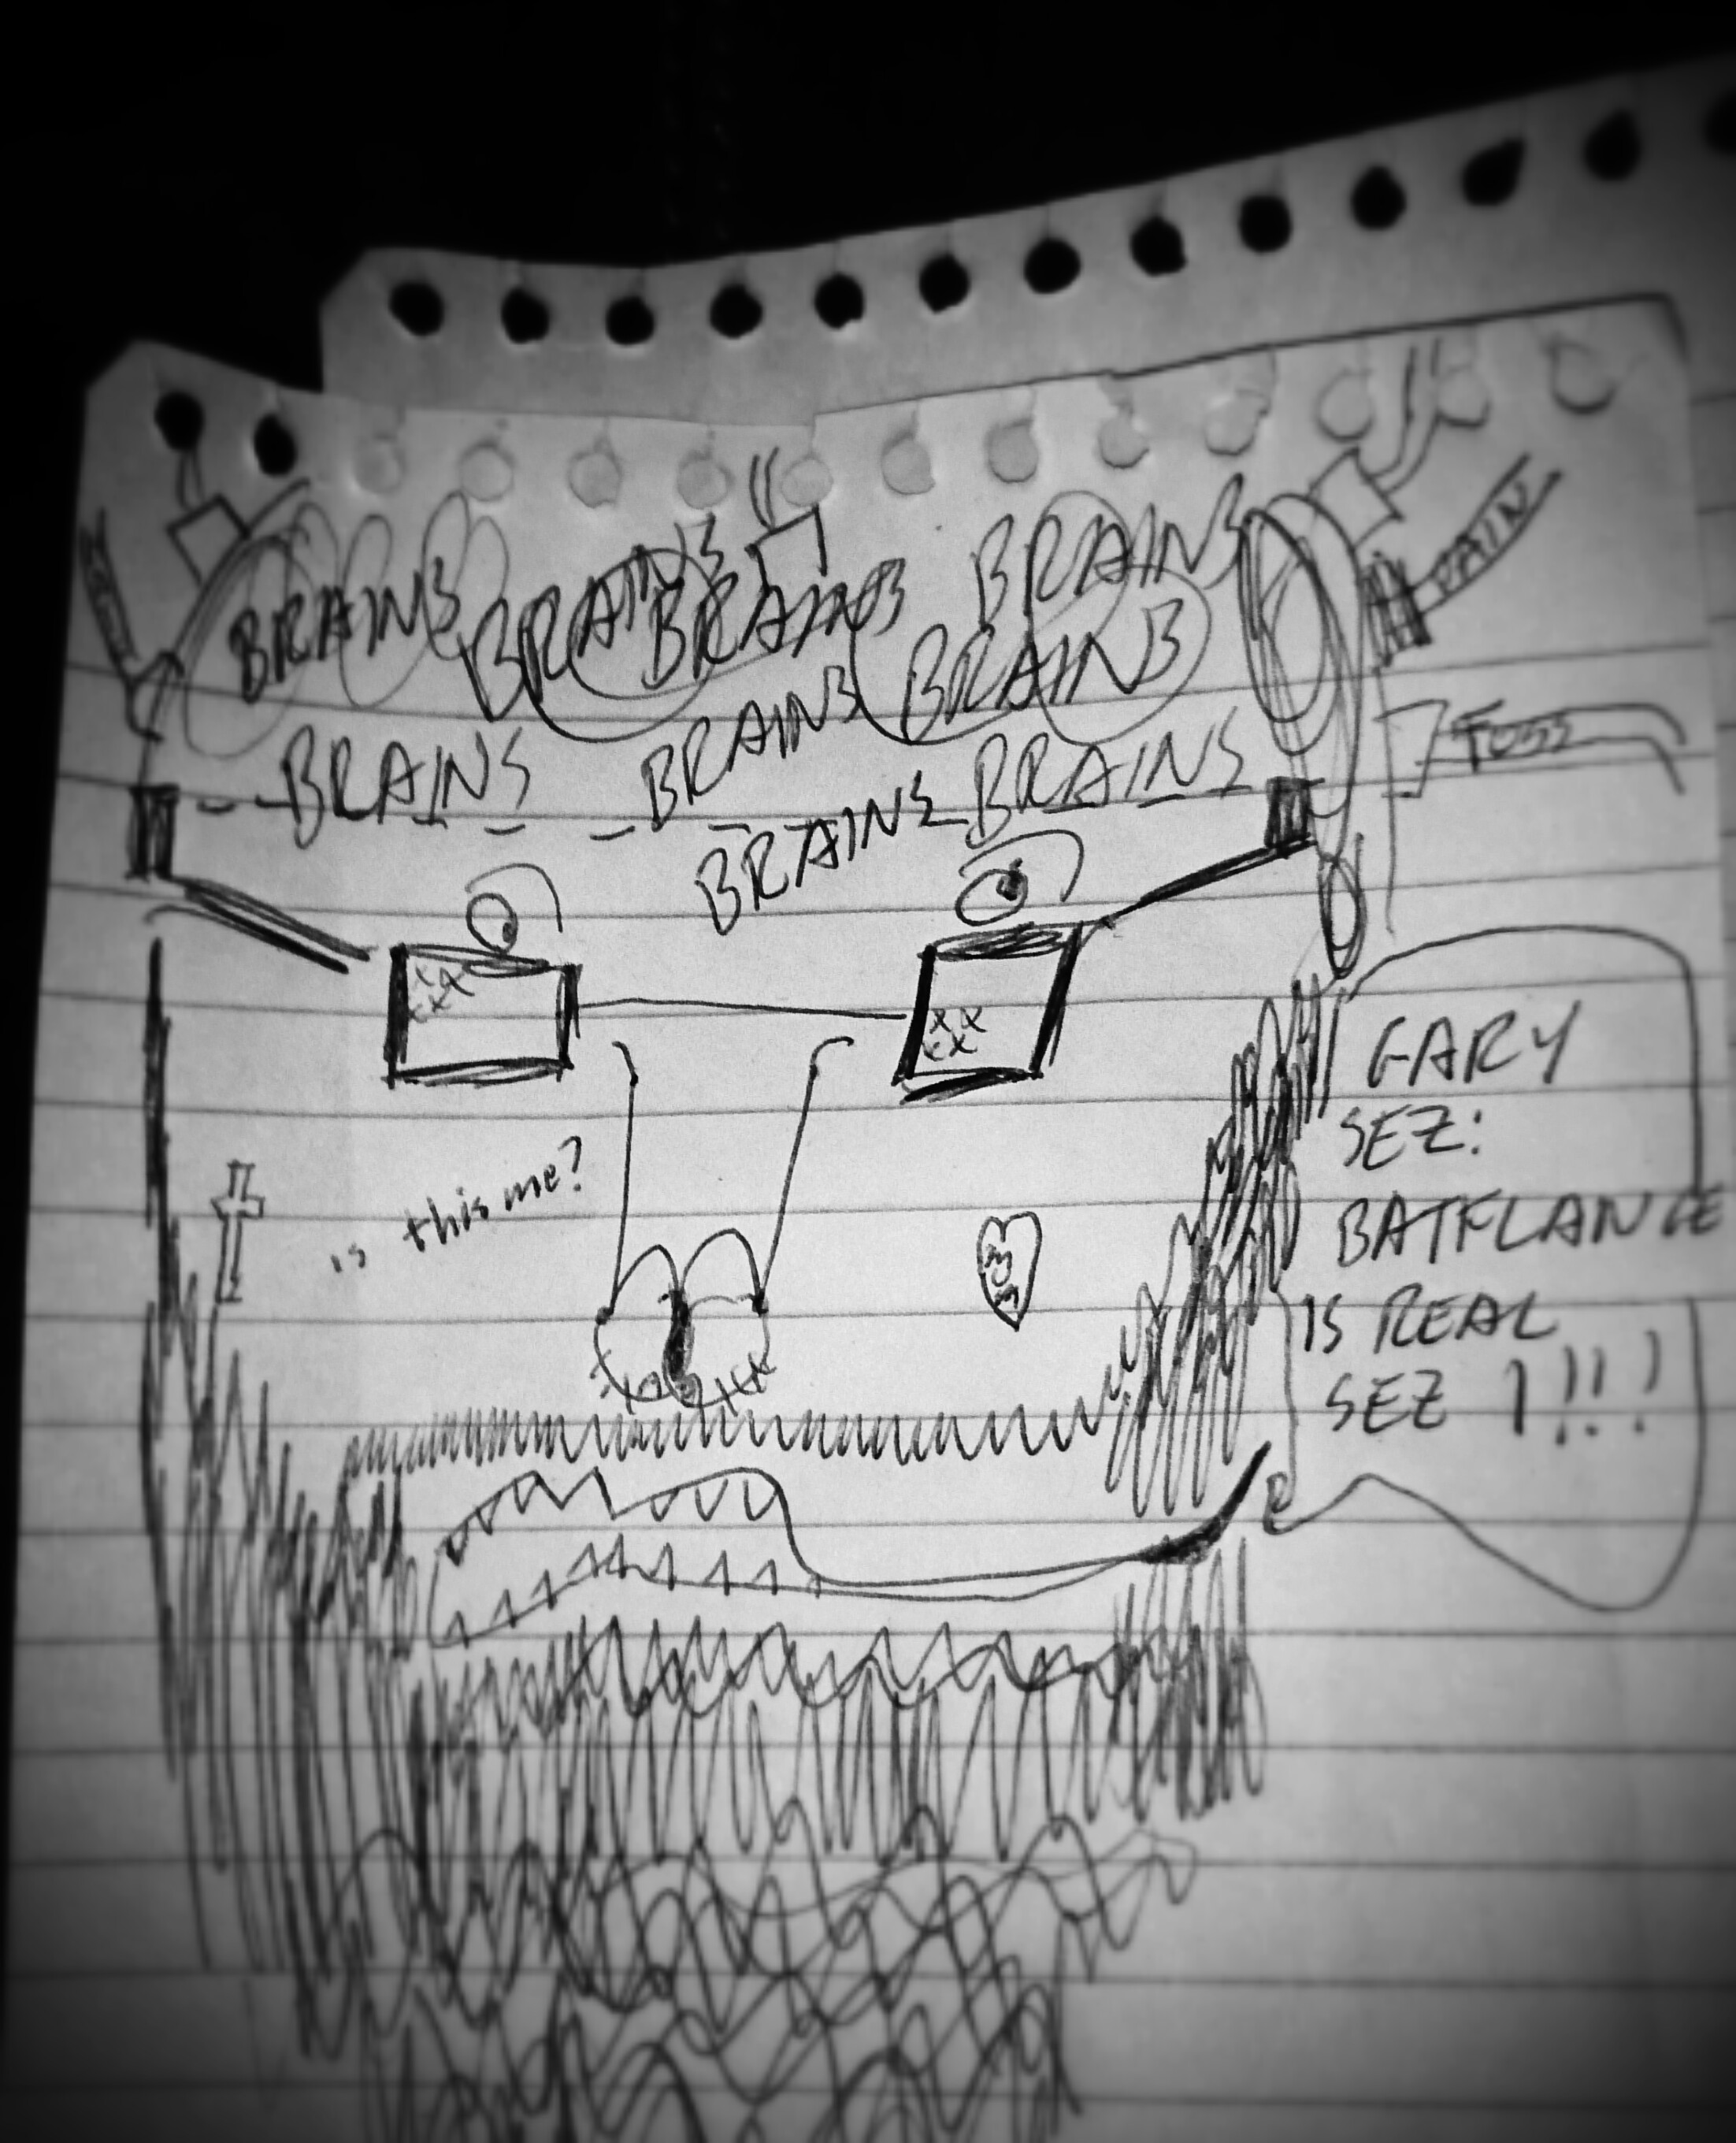 BRAINS BRAINS BRAINS BRAINS
BRAINS
PAIN
BRAINS BRAINS BRAINS
BRAINS
is this me?
GARY
SEZ:
BATFLANGE
IS REAL
SEZ I!!!